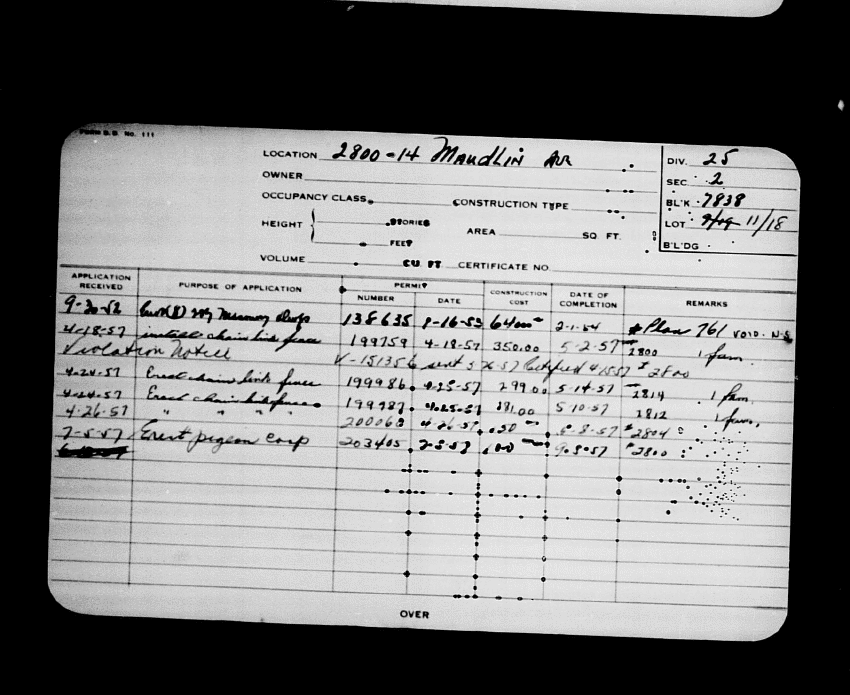 FORM B.B. No. 111
LOCATION 2800-14 Maudlin Ave
DIV. 25
OWNER
SEC. 2
OCCUPANCY CLASS. CONSTRUCTION TYPE
BL'K 7838
HEIGHT { STORIES AREA SQ. FT.
LOT 11/18
FEET
B'L'DG
VOLUME CU. FT. CERTIFICATE NO.
APPLICATION RECEIVED PURPOSE OF APPLICATION PERMIT NUMBER DATE CONSTRUCTION COST DATE OF COMPLETION REMARKS
9-30-52 138635 1-16-53 64000 2-1-54 Plan 761 VOID. N.S
4-18-57 install chain link fence 199759 4-18-57 350.00 5-2-57 2800 1 fam.
Violation Notice V-151356 sent # 2800
4-24-57 Erect chain link fence 199986 4-25-57 299.00 5-14-57 2814 1 fam.
4-24-57 Erect chain link fence 199987 4-25-57 181.00 5-10-57 2812 1 fam.
4-26-57 " " " " 200060 4-26-57 .50 6-8-57 # 2804
7-5-57 Erect pigeon coop 203405 7-5-57 9-5-57 # 2800
OVER